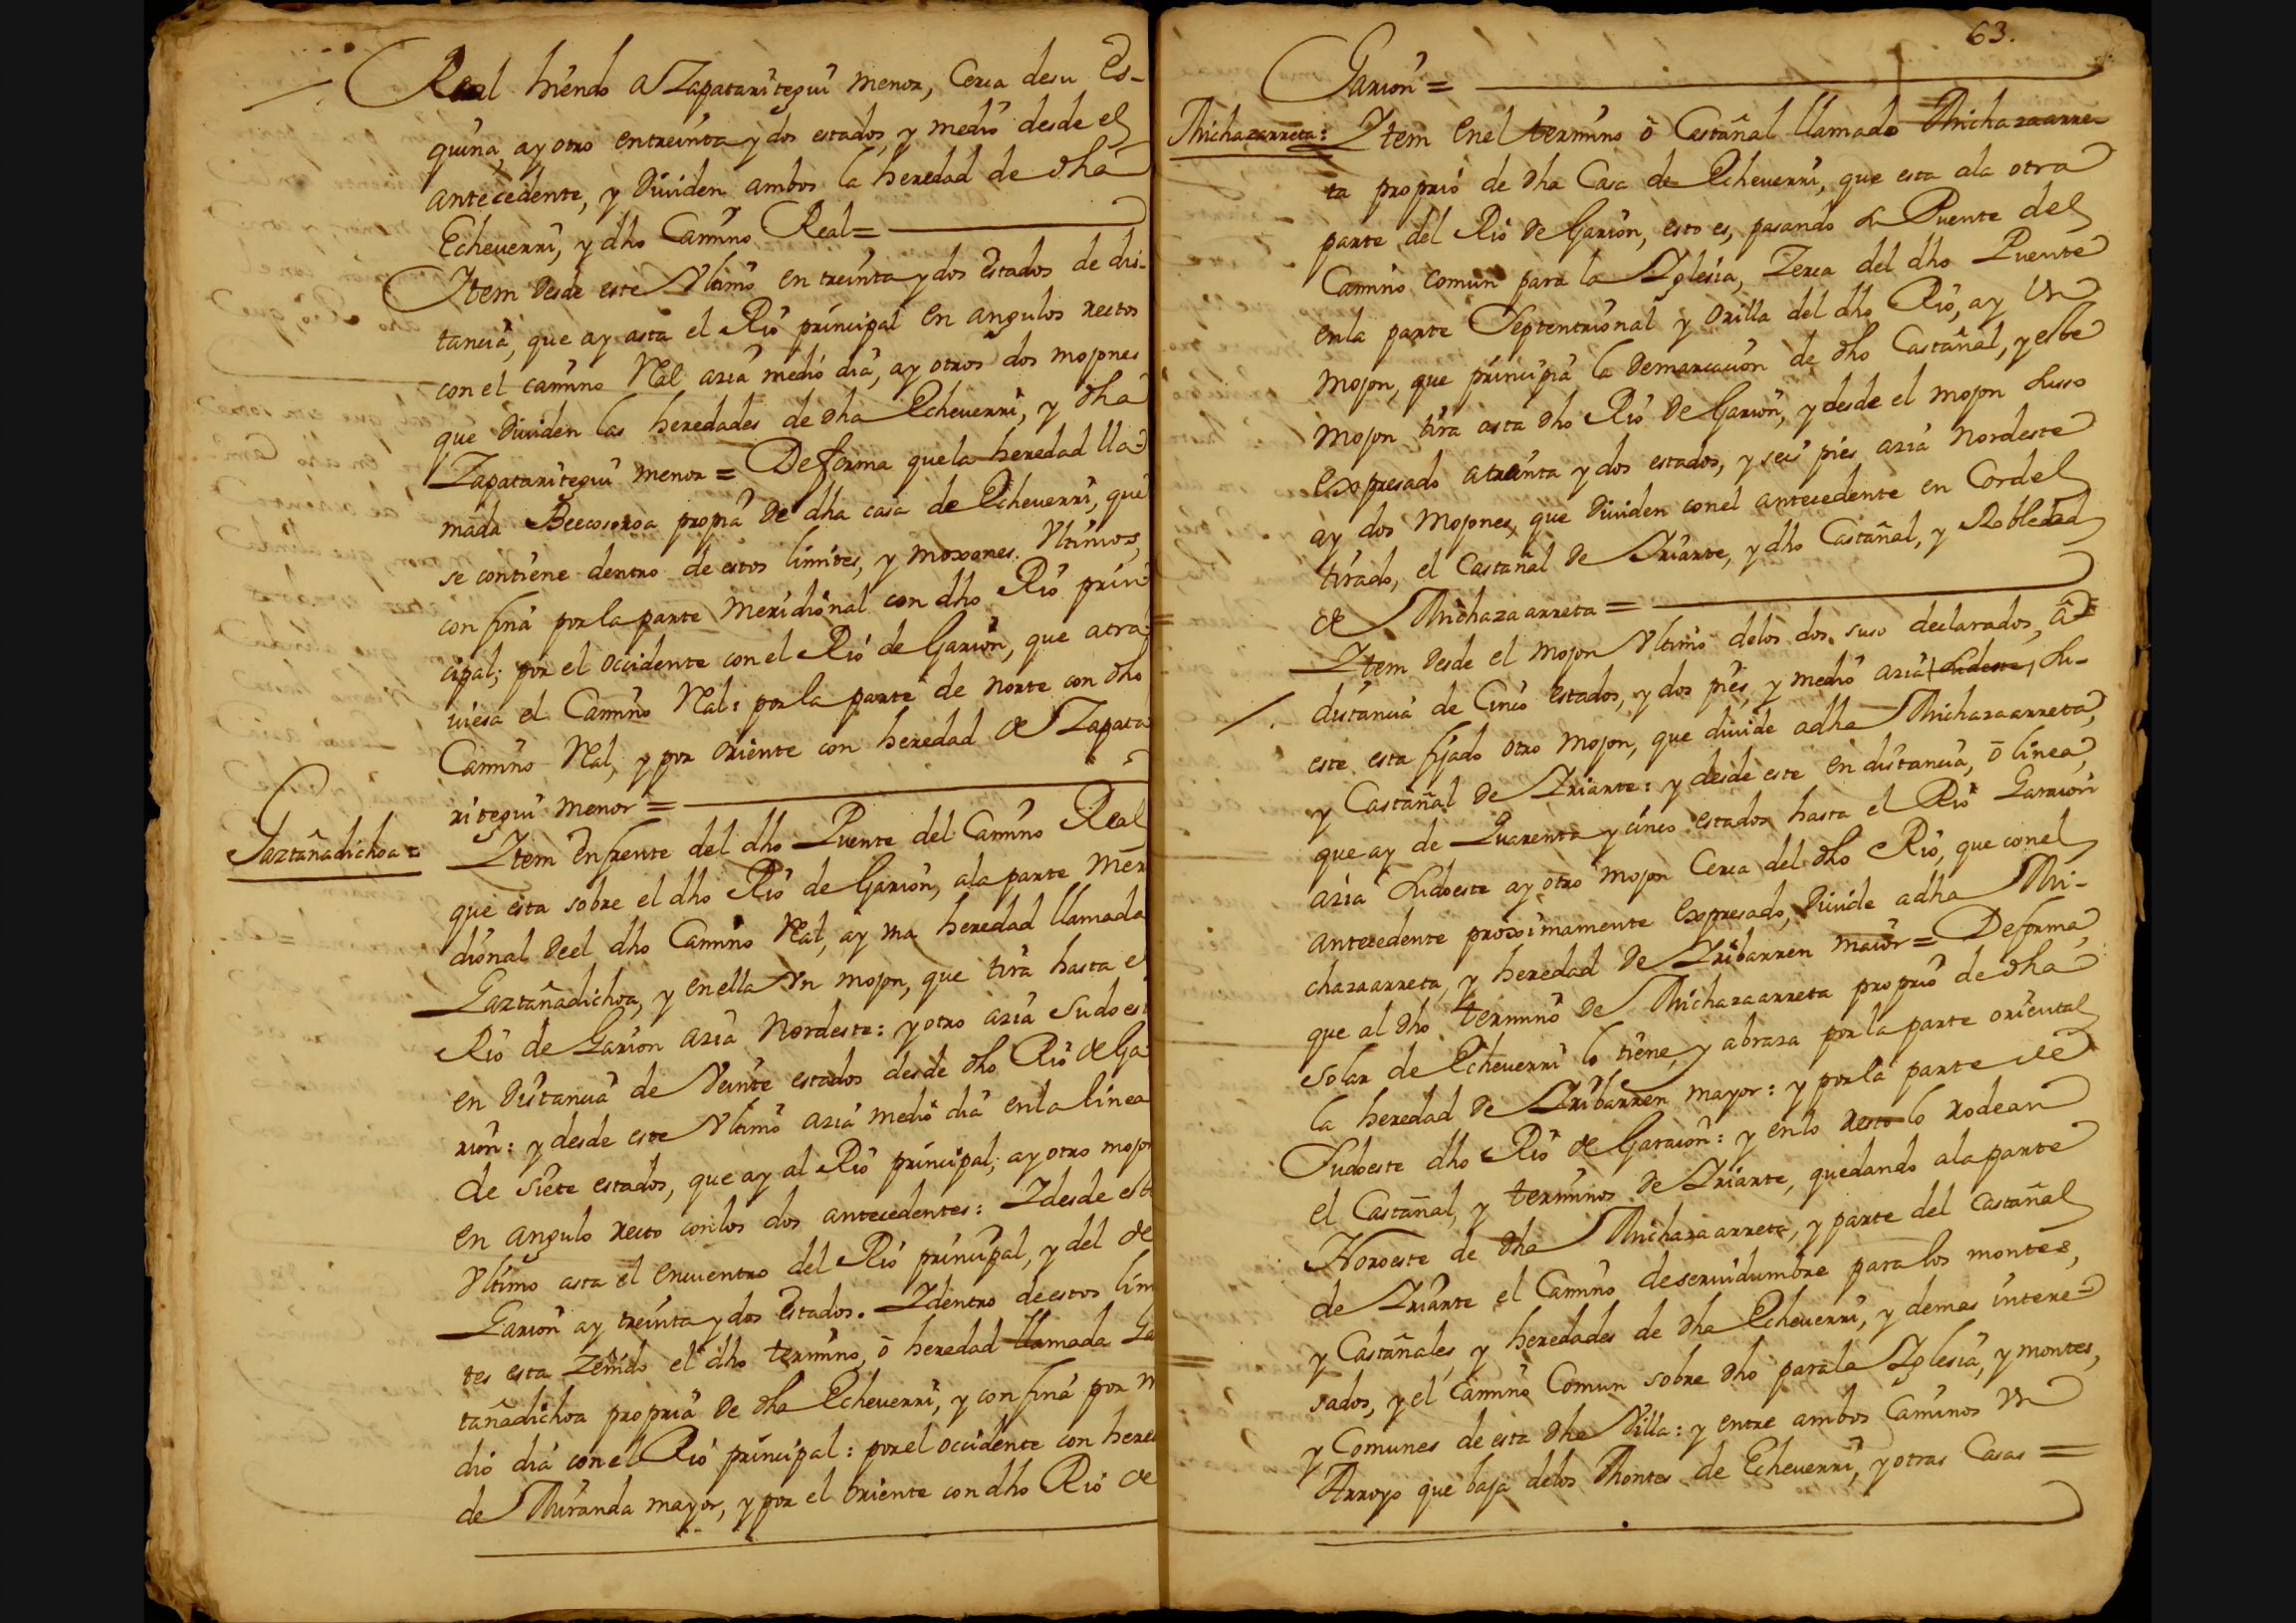 Real hiendo a Zapataritegui menor, Cerca desu Es-
quina, ay otro entreinta y dos estados, y medio desde el
antecedente, y Diuiden ambos la heredad de dha
Echeuerri, y dho Camino Real =
Item desde este Vltimo en treinta y dos Estados de dis-
tancia, que ay asta el Rio principal en angulos rectos
con el camino Ral azia medio dia, ay otros dos mojones
que Diuiden las heredades de dha Echeuerri, y dha
Zapataritegui menor = De forma que la heredad lla-
mada propia de dha casa de Echeuerri, que
se contiene dentro de estos limites, y moxones Vltimos,
confina por la parte Meridional con dho Rio prin
cipal; por el occidente con el Rio de Garion, que atra
uiesa el Camino Ral: por la parte de norte con dho
Camino Ral, y por oriente con heredad de Zapata
ritegui menor =
Gaztañadichoa =
Item Enfrente del dho Puente del Camino Real
que esta sobre el dho Rio de Garion, ala parte Meri
dional deel dho Camino Ral, ay vna heredad llamada
Gaztañadichoa, y en ella Vn mojon, que tira hasta el
Rio de Garion azia Nordeste: y otro azia Sudoest
en Distancia de Veinte estados desde dho Rio de Ga
rion: y desde este Vltimo azia medio dia enla linea
de siete estados, que ay al Rio principal, ay otro mojon
en angulo recto con los dos antecedentes: Idesde este
Vltimo asta el encuentro del Rio principal, y del de
Garion ay treinta y dos Estados. Identro de estos limi
tes esta zeñido el dho termino, ō heredad llamada Ga
tañadichoa propria de dha Echeuerri, y confina por m
dio dia con el Rio principal: por el occidente con hered
de Miranda mayor, y por el oriente con dho Rio de
63.
Garion =
Michazarreta: Item Enel termino ō Castañal llamado Michazaarre-
ta proprio de dha Casa de Echeuerri, que esta ala otra
parte del Rio de Garion, esto es, pasando la Puente del
Camino comun para la Iglesia, Zerca del dho Puente
enla parte Septentrional y orilla del dho Rio, ay Vn
Mojon, que principia la Demarcacion de dho Castañal, y este
Mojon tira asta dho Rio de Garion, y desde el mojon Susso
Expresado atreinta y dos estados, y seis pies azia Nordeste
ay dos Mojones, que Diuiden con el antecedente en Cordel
tirado, el Castañal de Iriarte, y dho Castañal, y Robledad
de Michazaarreta =
Item desde el Mojon Vltimo delos dos suso declarados, â
distancia de Cinco Estados, y dos pies, y medio azia Su-
este esta fijado otro mojon, que diuide adha Michazaarreta,
y Castañal de Iriarte: y desde este en distancia, ō linea,
que ay de Quarenta y cinco estados hasta el Rio Garaion
azia Sudoeste ay otro mojon Cerca del dho Rio, que con el
antecedente proximamente Expresado, Diuide adha Mi-
chazaarreta, y heredad de Iribarren maior = De forma
que al dho termino de Michazaarreta proprio de dha
solar de Echeuerri lo tiene, y abraza por la parte oriental
la heredad de Iribarren mayor: y por la parte de
Sudoeste dho Rio de Garaion: y en lo resto lo rodean
el Castañal, y terminos de Iriarte, quedando ala parte
Noroeste de dha Michazaarreta, y parte del Castañal
de Iriarte el Camino deseruidumbre para los montes,
y Castañales, y heredades de dha Echeuerri, y demas intere-
sados, y el Camino Comun sobre dho para la Iglesia, y montes,
y Comunes de esta dha Villa: y entre ambos Caminos Vn
Arroyo que baja delos Montes de Echeuerri, y otras Casas =